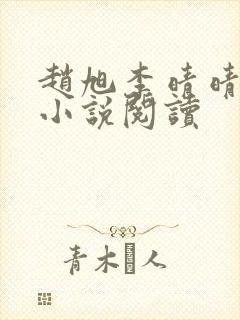 趙旭李晴晴
小說閱讀
青木人